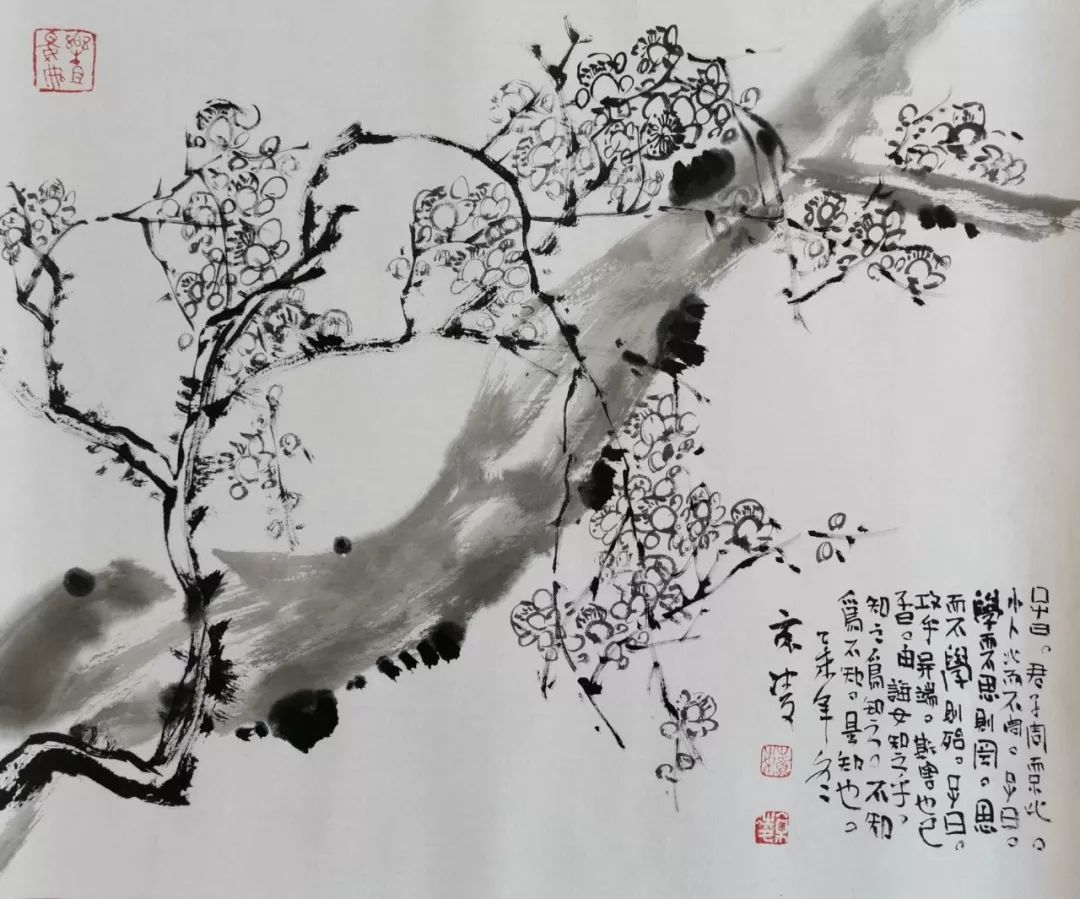 子曰。君子周而不比。
小人比而不周。子曰。
學而不思則罔。思
而不學則殆。子曰。
攻乎異端。斯害也已
子曰。由誨女知之乎。
知之爲知之。不知
爲不知。是知也。
乙未年冬